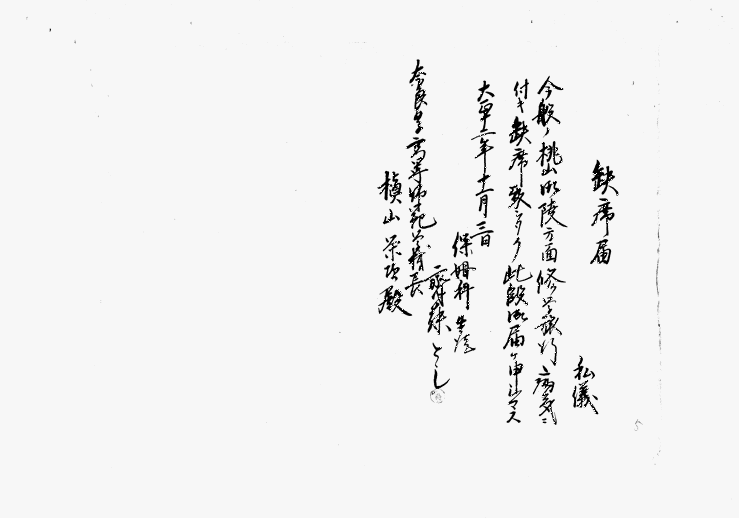 缺席届
私儀
今般ノ桃山御陵方面修学旅行病気ニ
付キ缺席致シタク此段御届ケ申シマス
大正二年十一月三日
保姆科生徒
齋藤とし
奈良女子高等師範学校長
槙山栄次殿